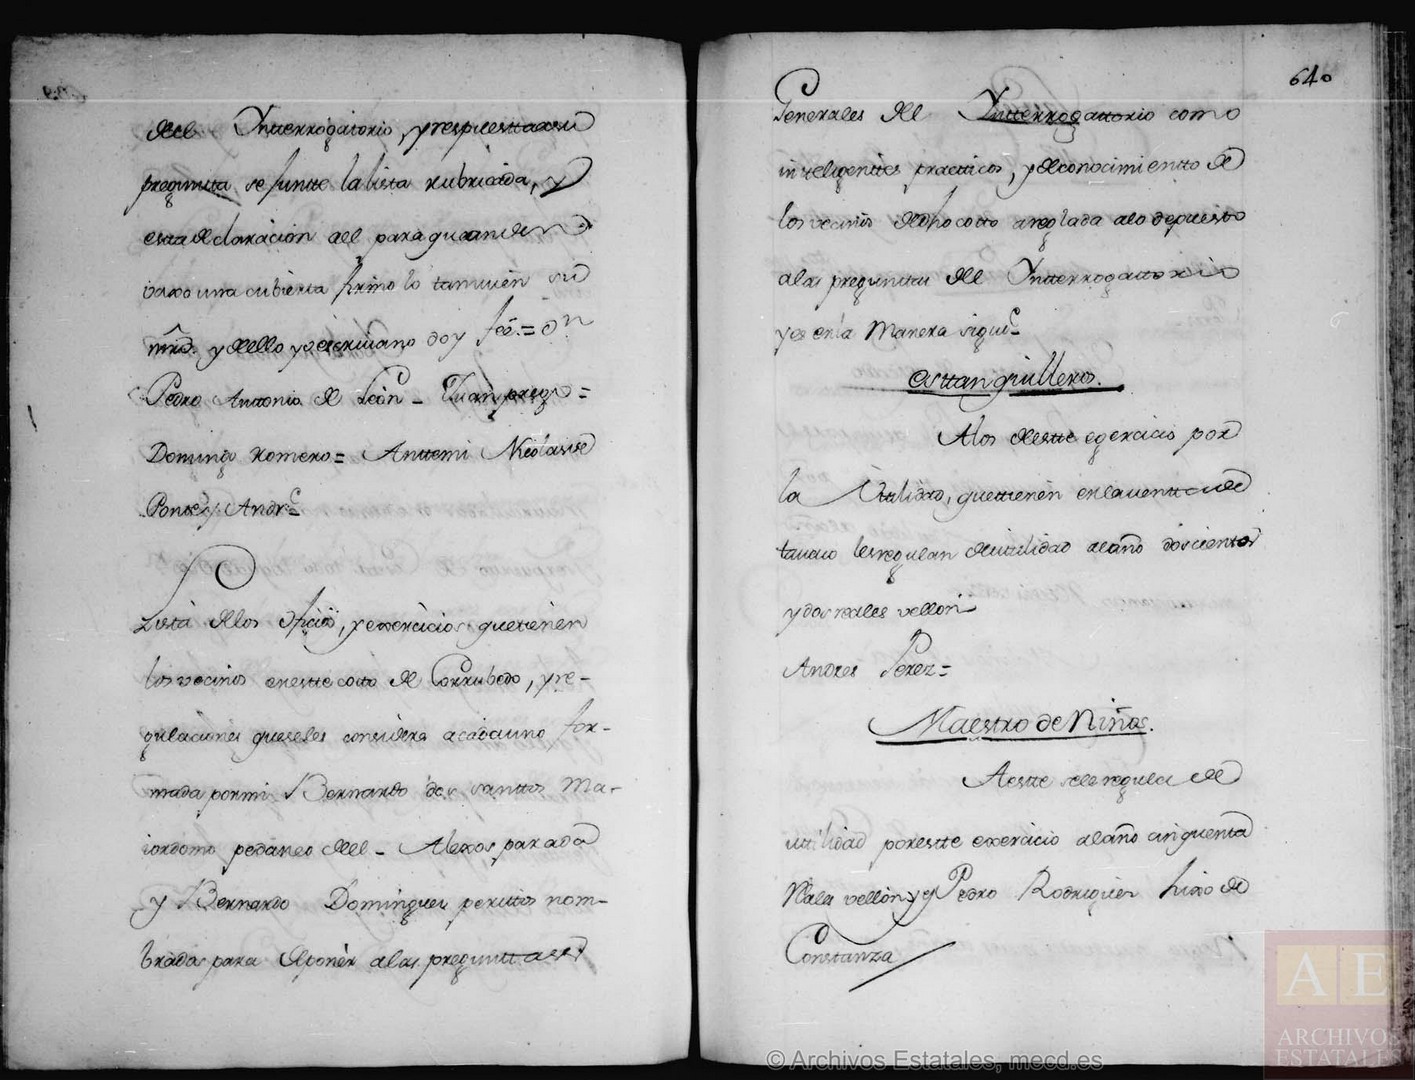 del Ynterrogatorio, y respuesta a su
pregunta se juntte la lista rubricada, y
esta declaracion all para que anden
vaxo una cubierta firmolo tamvien su
mrd. y dello yo escrivano doy feé = Dn
Pedro Anttonio de León - Juan prego =
Domingo Romero = Anttemi Nicolas de
Ponte y Andre
Lista dlos oficios, y exercicios que tienen
los vecinos en estte cotto de Corrubedo, y re-
gulaciones que seles considera a cada uno for-
mada por mi Bernardo dos santtos Ma-
iordomo pedaneo dell - Alexos parada
y Bernardo Dominguez perittos nom-
brados para deponer alas preguntas
640
Generales del Ynterrogattorio como
inteligenttes practicos, y de conocimientto de
los vecinos de dho cotto areglada alo depuesto
alas preguntas del Ynterrogattorio
y es en la Manera siguie
Esttanquilleros.
Alos de estte egercicio por
la Utilidad, que ttienen en la ventta de
tavaco les regulan de utilidad al año doscientos
y dos reales vellon
Andres Perez =
Maestro de Niños.
A estte se le regula de
utilidad por estte exercicio al año cinquenta
Rales vellon y es Pedro Rodriguez hixo de
Constanza
© Archivos Estatales, mecd.es
A E
ARCHIVOS
ESTATALES